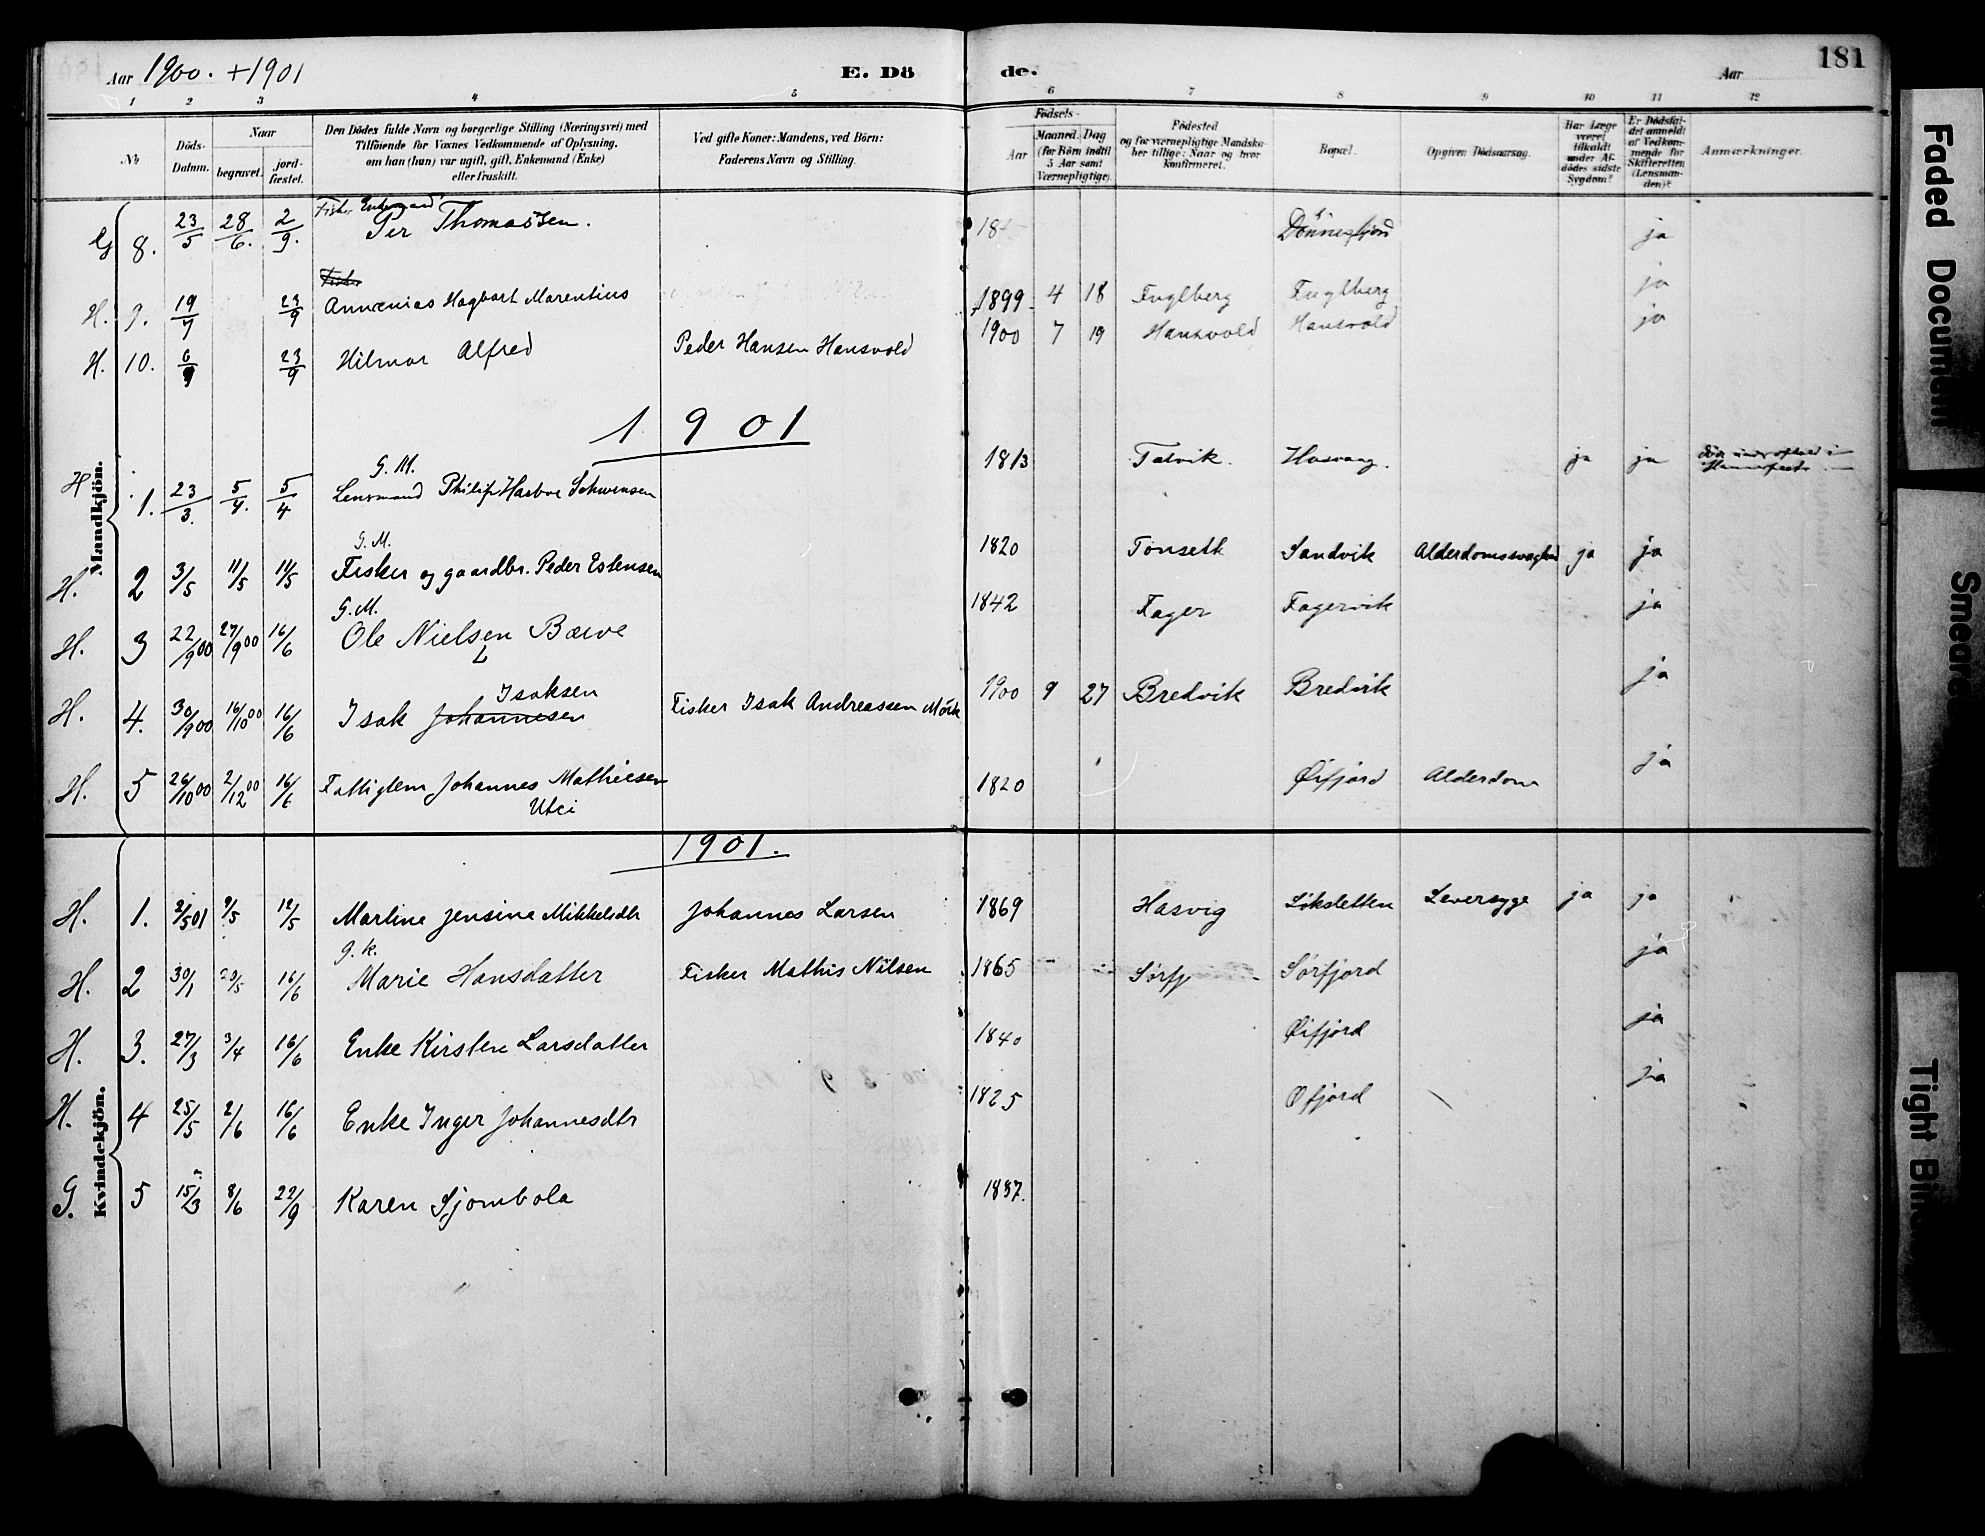 Aar 1900. + 1901 E. Dö de. Aar 181
1 2 3 4 5 6 7 8 9 10 11 12
No
Döds-Datum.
Naar begravet. jordfæstet.
Den Dödes fulde Navn og borgerlige Stilling (Næringsvei) med
Tilföiende for Voxnes Vedkommende af Oplysning,
om han (hun) var ugift, gift, Enkemand (Enke)
eller fraskilt.
Ved gifte Koner: Mandens, ved Börn:
Faderens Navn og Stilling.
Födsels-
Aar Maaned. Dag
(for Börn indtil 5 Aar samt Værnepligtige).
Födested
og for værnepligtige Mandskaber tillige: Naar og hvor
konfirmeret.
Bopæl.
Opgiven Dödsaarsag.
Har Læge været tilkaldt under Afdödes sidste Sygdom?
Er Dödsfaldet anmeldt af Vedkommende for Skifteretten (Lensmanden)?
Anmærkninger.
Fisker Enkemand
G 8. 23/5 28/6. 2/9. Per Thomassen. Dönnesfjord ja
Fisker
H. 9. 19/7 23/9 Annanias Hagbart Marentius 1899 4 18 Fuglberg Fuglberg ja
H. 10. 6/9 23/9 Hilmar Alfred Peder Hansen Hansvold 1900 7 19 Hansvold Hansvold ja
1901
Mandkjön.
G. M.
H 1. 23/3. 5/4. 5/4 Lensmand Philip Harboe Schwensen 1813 Talvik. Hasvaag. ja ja
G. M.
H. 2 3/5 11/5 11/5 Fisker og gaardbr. Peder Estensen 1820 Tönseth Sandvik Alderdomssvaghed ja ja
G. M.
H. 3 22/9 00 27/9 00 16/6 Ole Nielsen Bærve 1842 Fager Fagervik ja
Isaksen
H. 4. 30/9 00 16/10 00 16/6 Isak Johannesen Fisker Isak Andreassen Mörk 1900 9 27 Bredvik Bredvik ja
H. 5 26/10 00 2/12 00 16/6 Fattiglem Johannes Mathiesen
Utsi 1820 Öifjord Alderdom ja
1901.
Kvindekjön.
H. 1. 2/5 01 9/5 12/5 Martine Jensine Mikkelsdtr Johannes Larsen 1869 Hasvig Sluksletten Leversyge ja ja
g. k.
H. 2 30/1 20/5 16/6 Marie Hansdatter Fisker Mathis Nilsen 1865 Sörfj Sörfjord ja
H. 3. 27/3 3/4 16/6 Enke Kirsten Larsdatter 1840 Öifjord ja
H. 4 25/5 2/6 16/6 Enke Inger Johannesdtr 1825 Öfjord ja
G. 5 15/3 8/6 22/9 Karen Sjombola 1837.
Faded Document
Smeared
Tight Bin